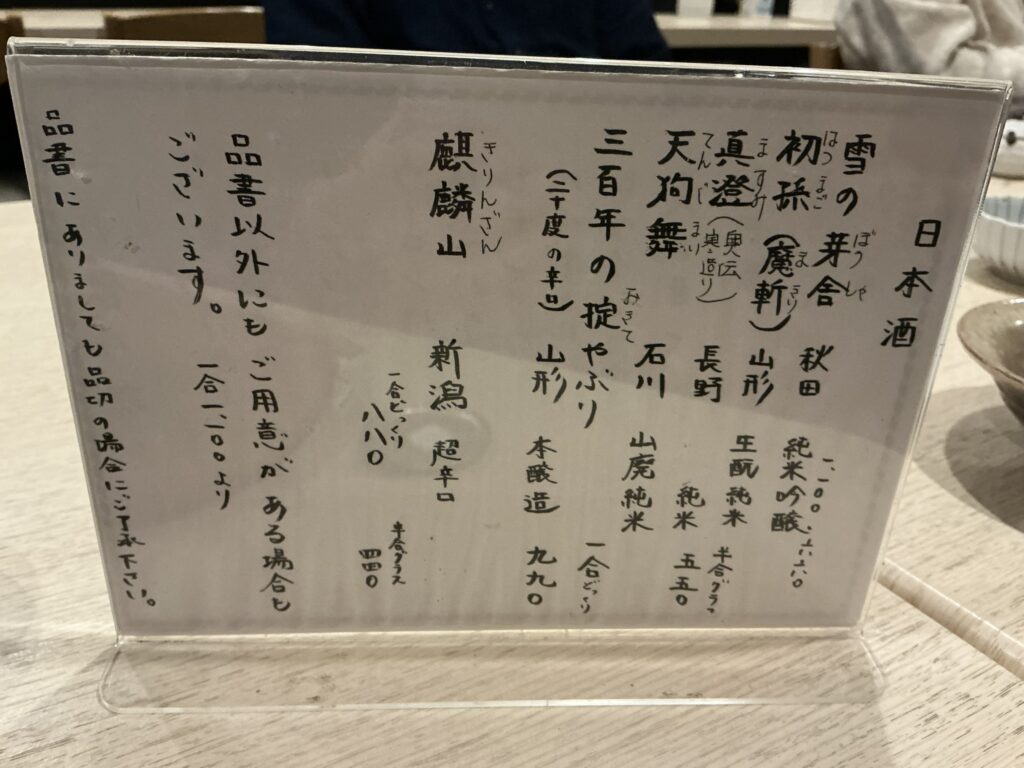 日本酒
雪の芽舎 秋田 純米吟醸
ぼうしゃ
一、一〇〇・六六〇
初孫(魔斬) 山形 生酛純米
はつまご まきり
真澄(奥伝寒造り) 長野 純米
ますみ
半合グラス
五五〇
天狗舞 石川 山廃純米
てんぐまい
三百年の掟やぶり
おきて
一合どっくり
(二十度の辛口) 山形 本醸造 九九〇
麒麟山 新潟 超辛口
きりんざん
一合どっくり 半合グラス
八八〇 四四〇
品書以外にもご用意がある場合も
ございます。 一合一、一〇〇より
品書にありましても品切の場合にご了承下さい。